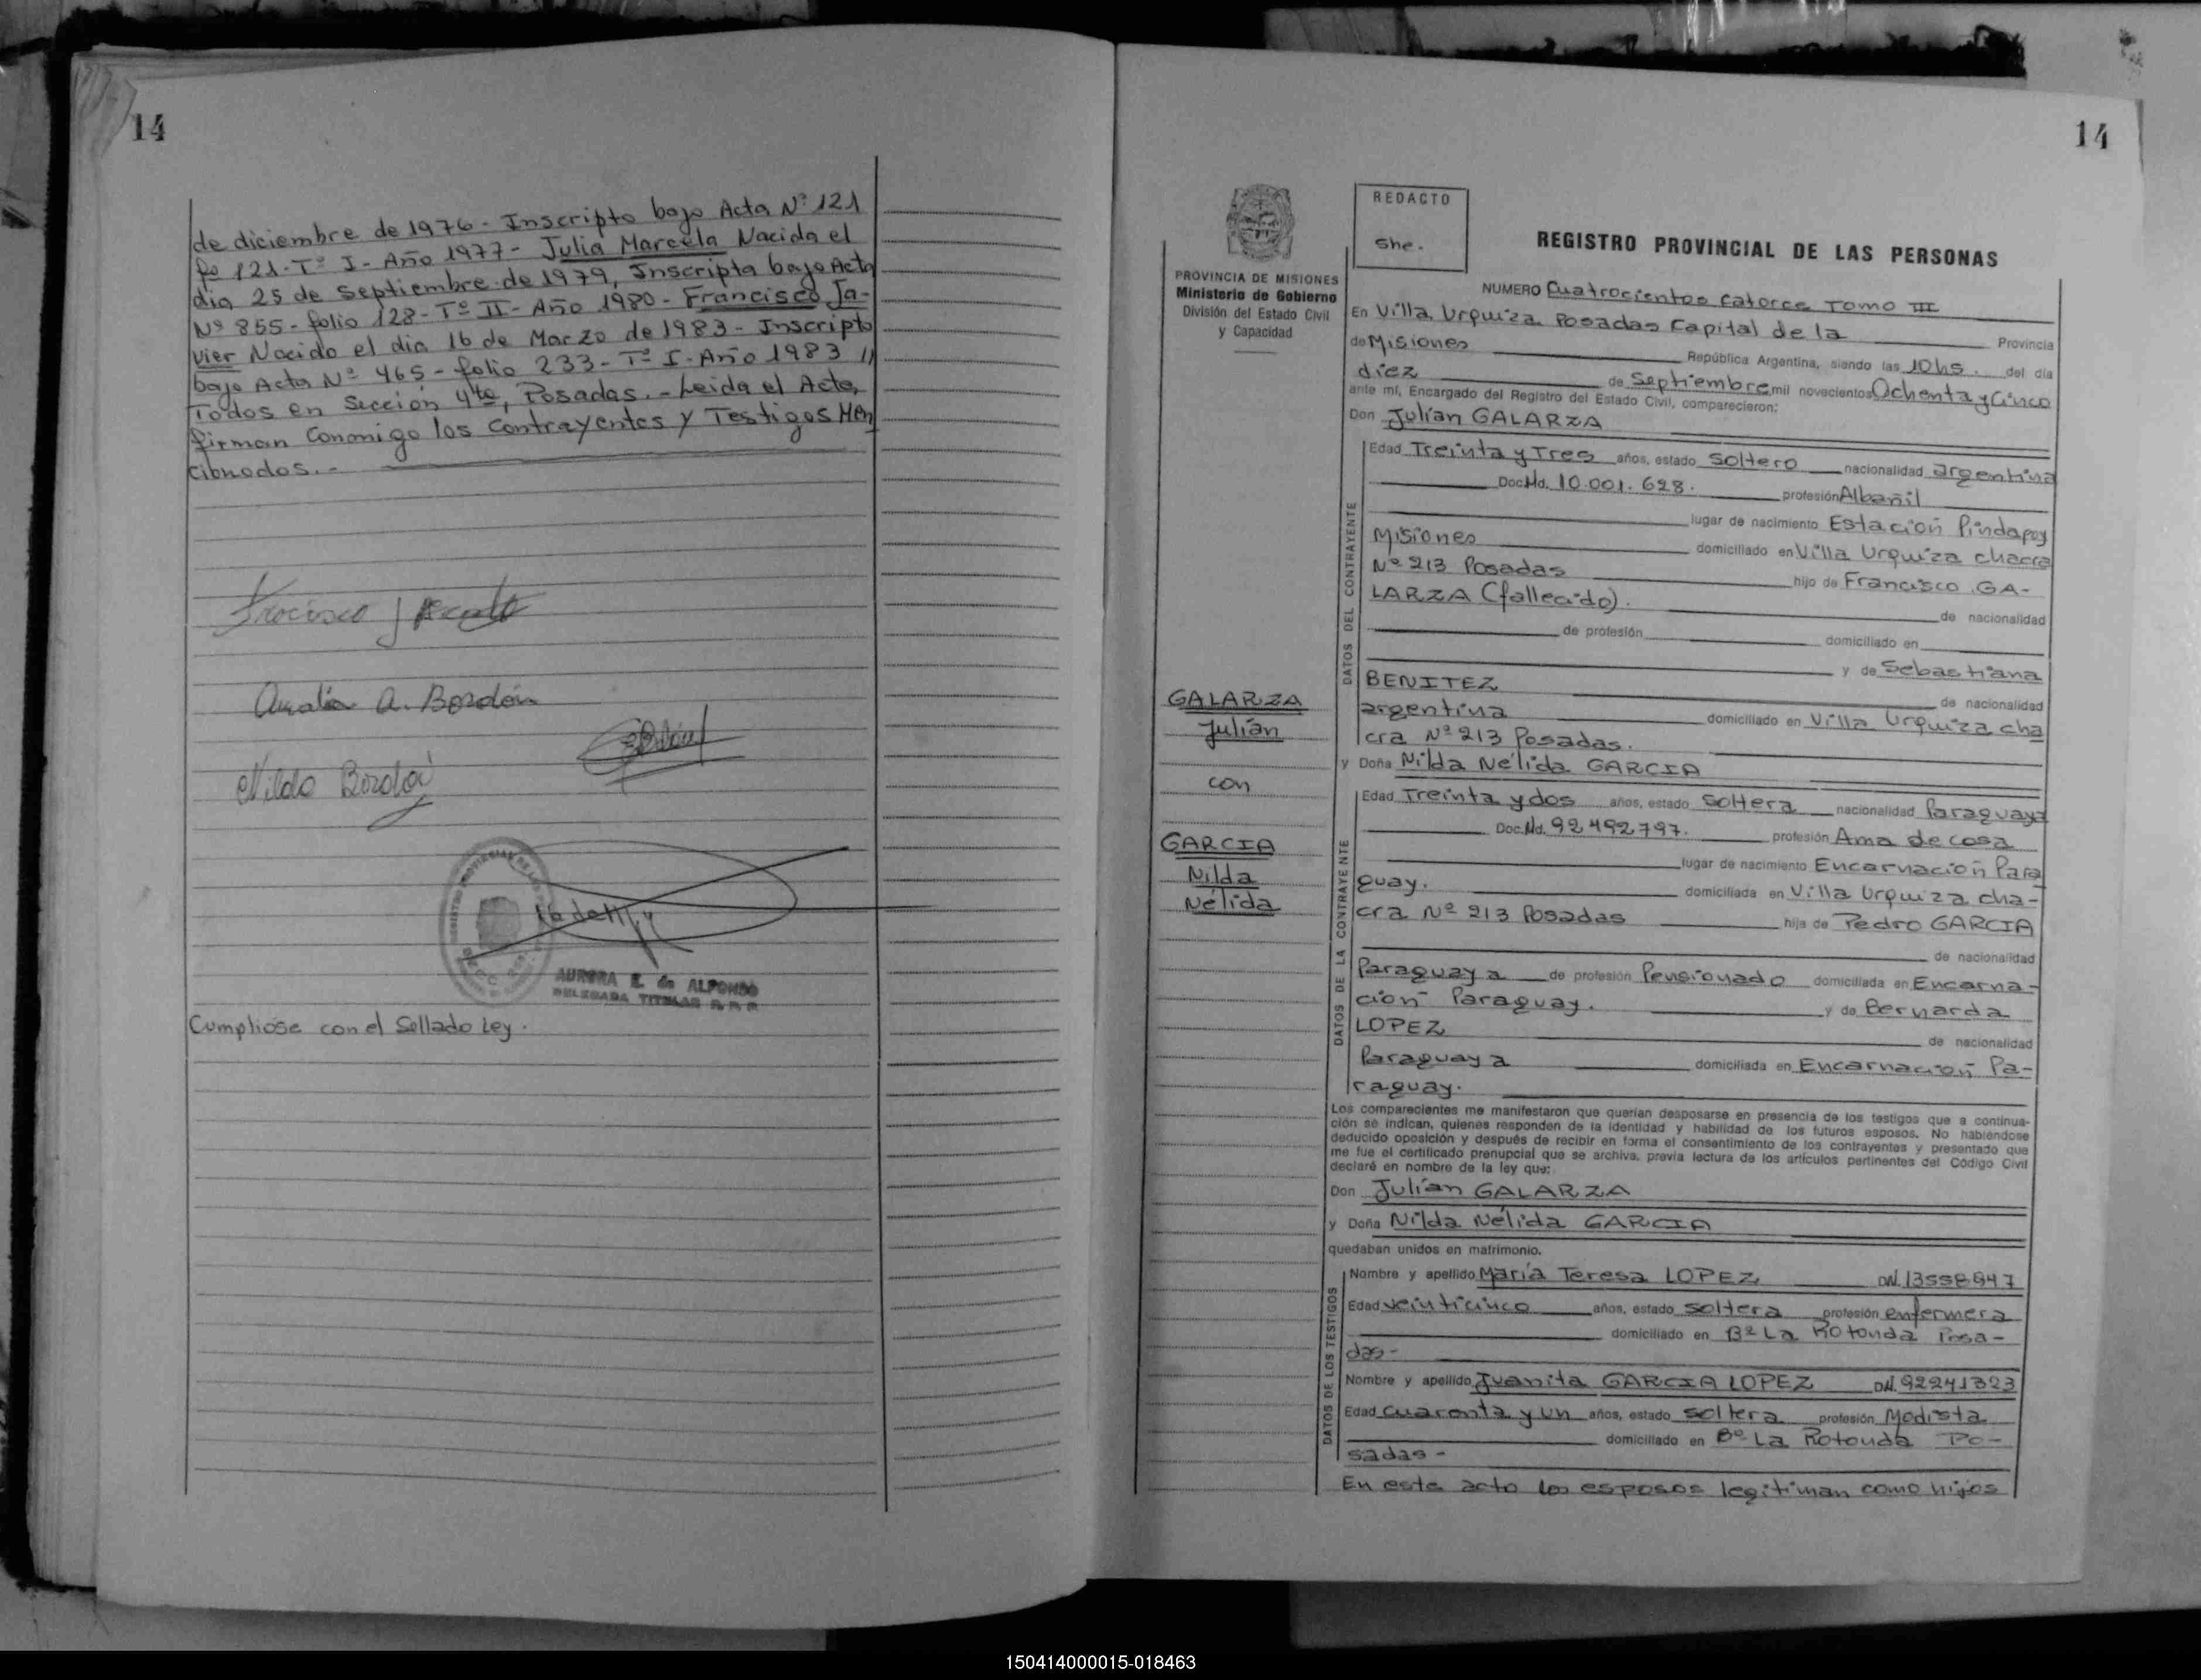 14
de diciembre de 1976 - Inscripto bajo Acta Nº 121
Fº 121 - Tº I - Año 1977 - Julia Marcela Nacida el
dia 25 de Septiembre de 1979, Inscripta bajo Acta
Nº 855 - folio 128 - Tº II - Año 1980 - Francisco Ja-
vier Nacido el dia 16 de Marzo de 1983 - Inscripto
bajo Acta Nº 465 - folio 233 - Tº I - Año 1983 //
Todos en Sección 4ta, Posadas. - Leida el Acta,
firman Conmigo los Contrayentes y Testigos Men
cionados. -
Amalia A. Bordón
Nilda Bordón
AURORA E. de ALFONSO
DELEGADA TITULAR R. P. P.
Cumpliose con el Sellado Ley.
14
PROVINCIA DE MISIONES
Ministerio de Gobierno
División del Estado Civil
y Capacidad
REDACTO
She.
REGISTRO PROVINCIAL DE LAS PERSONAS
NUMERO Cuatrocientos Catorce Tomo III
En Villa Urquiza Posadas Capital de la Provincia
de Misiones República Argentina, siendo las 10hs. del día
diez de Septiembre mil novecientos Ochenta y Cinco
ante mí, Encargado del Registro del Estado Civil, comparecieron:
Don Julián GALARZA
DATOS DEL CONTRAYENTE
Edad Treinta y Tres años, estado Soltero nacionalidad argentina
Doc.Nd. 10.001.628. profesión Albañil
lugar de nacimiento Estación Pindapoy
Misiones domiciliado en Villa Urquiza chacra
Nº 213 Posadas hijo de Francisco GA-
LARZA (fallecido). de nacionalidad
de profesión domiciliado en
y de Sebastiana
BENITEZ de nacionalidad
argentina domiciliado en Villa Urquiza cha
cra Nº 213 Posadas.
GALARZA
Julián
con
GARCIA
Nilda
Nélida
y Doña Nilda Nélida GARCIA
DATOS DE LA CONTRAYENTE
Edad Treinta y dos años, estado Soltera nacionalidad Paraguaya
Doc.Nd. 92492797. profesión Ama de casa
lugar de nacimiento Encarnación Para
guay. domiciliada en Villa Urquiza cha-
cra Nº 213 Posadas hija de Pedro GARCIA
de nacionalidad
Paraguaya de profesión Pensionado domiciliada en Encarna-
ción Paraguay. y de Bernarda
LOPEZ de nacionalidad
Paraguaya domiciliada en Encarnación Pa-
raguay.
Los comparecientes me manifestaron que querían desposarse en presencia de los testigos que a continua-
ción se indican, quienes responden de la identidad y habilidad de los futuros esposos. No habiéndose
deducido oposición y después de recibir en forma el consentimiento de los contrayentes y presentado que
me fue el certificado prenupcial que se archiva, previa lectura de los artículos pertinentes del Código Civil
declaré en nombre de la ley que:
Don Julián GALARZA
y Doña Nilda Nélida GARCIA
quedaban unidos en matrimonio.
DATOS DE LOS TESTIGOS
Nombre y apellido María Teresa LOPEZ DN. 13558847
Edad veinticinco años, estado soltera profesión enfermera
domiciliado en Bº La Rotonda Posa-
das-
Nombre y apellido Juanita GARCIA LOPEZ DN. 92241323
Edad cuarenta y un años, estado soltera profesión Modista
domiciliado en Bº La Rotonda Po-
sadas-
En este acto los esposos legitiman como hijos
150414000015-018463